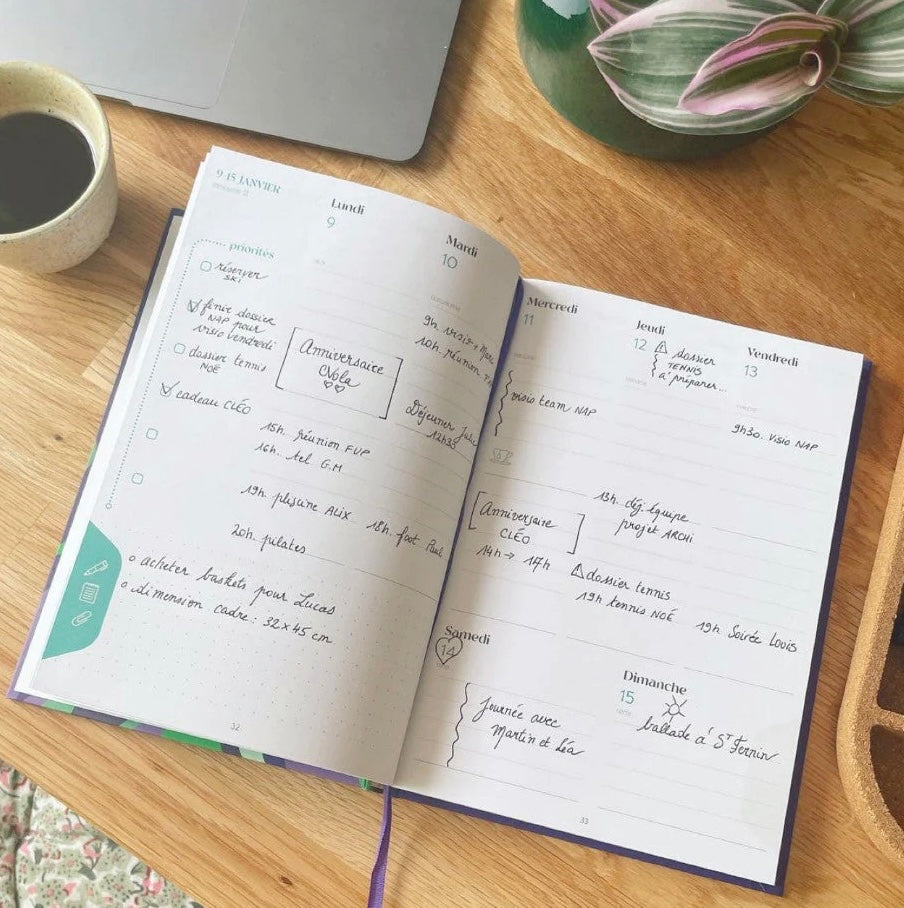 9-15 JANVIER
Lundi
9
priorités
réserver
SKI
finir dossier
NAP pour
visio vendredi
dossier tennis
NOÉ
cadeau CLÉO
Anniversaire
Nola
15h. Réunion FVP
16h. tel G.M
19h. piscine ALIX
20h. pilates
o acheter baskets pour Lucas
o dimension cadre : 32 x 45 cm
32
Mardi
10
9h visio + Marc
10h. réunion
Déjeuner Julie
12h35
18h. foot Paul
Mercredi
11
visio team NAP
Anniversaire
CLÉO
14h → 17h
Jeudi
12
dossier
TENNIS
à préparer...
13h. déj. équipe
projet ARCHI
dossier tennis
19h tennis NOÉ
Vendredi
13
9h30. VISIO NAP
19h Soirée Louis
Samedi
14
Journée avec
Martin et Léa
Dimanche
15
ballade à ST Fernin
33